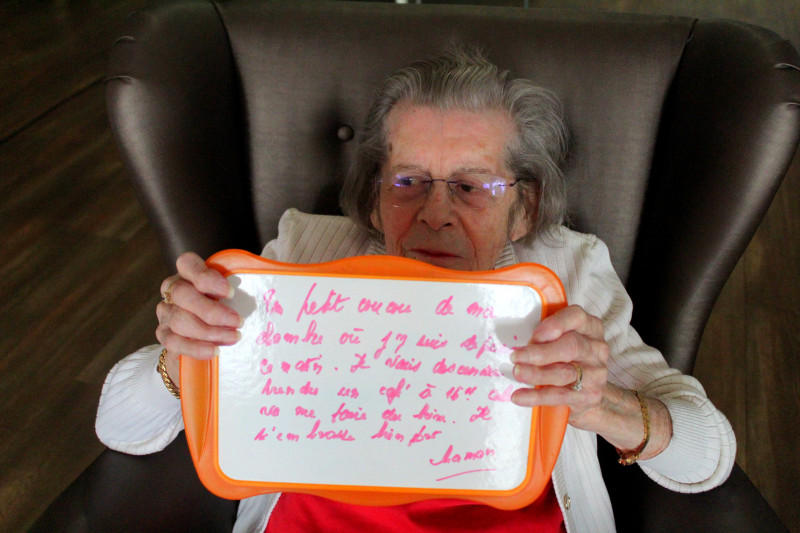 Un petit coucou de ma
chambre où j'y suis depuis
ce matin. Je vais descendre
prendre un café à 16H cela
va me faire du bien. Je
t'embrasse bien fort
Maman